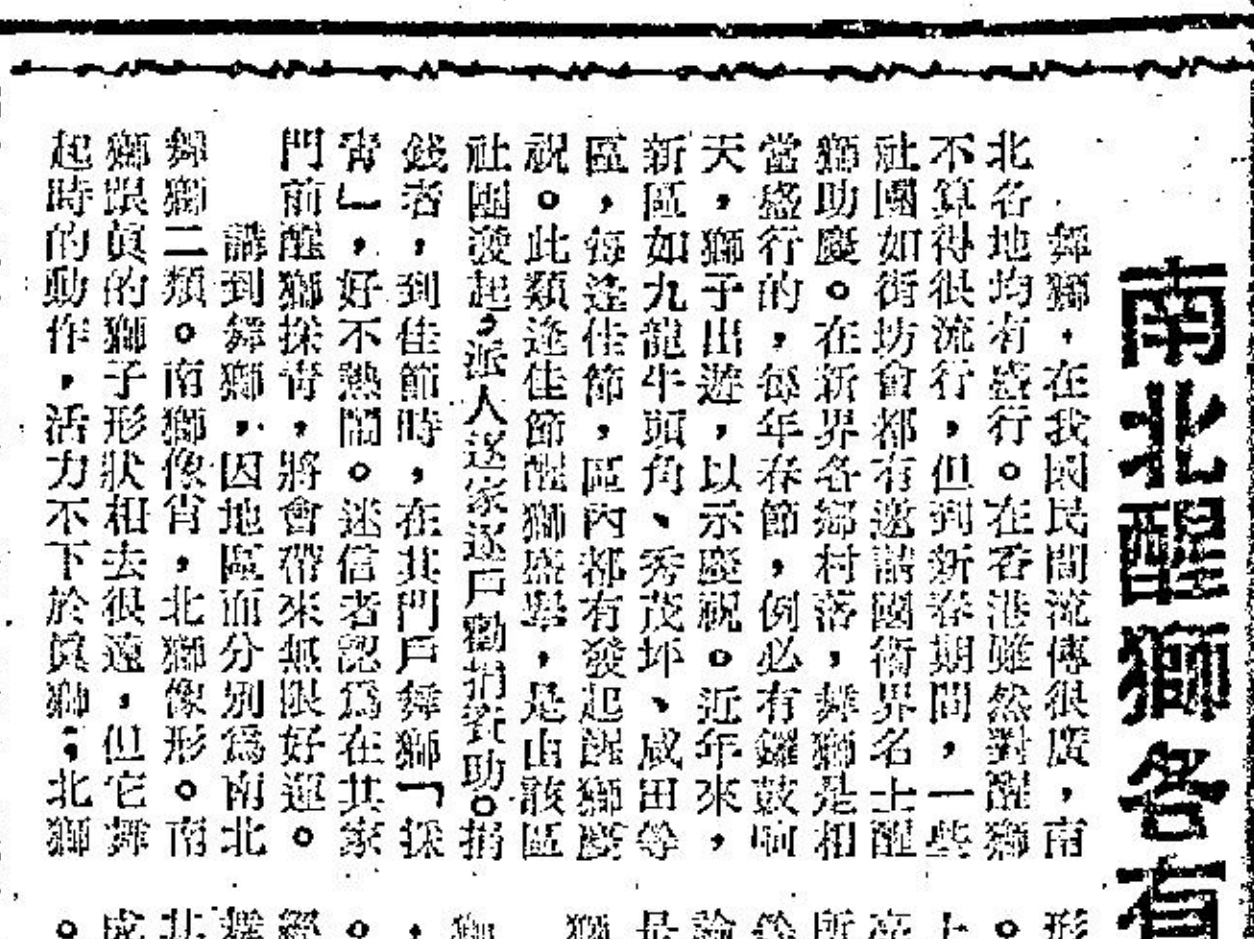 南北醒獅名有
舞獅，在我國民間流傳很廣，南
北各地均有盛行。在香港雖然對醒獅
不算得很流行，但到新春期間，一些
社團如街坊會都有邀請國術界名士醒
獅助慶。在新界各鄉村落，舞獅是相
當盛行的，每年春節，例必有鑼鼓响
天，獅子出遊，以示慶祝。近年來，
新區如九龍牛頭角、秀茂坪、咸田等
區，每逢佳節，區內都有發起醒獅慶
祝。此類逢佳節醒獅盛舉，是由該區
社團發起，派人逐家逐戶勸捐資助。捐
錢者，到佳節時，在其門戶舞獅「採
靑」，好不熱鬧。迷信者認爲在其家
門前醒獅採靑，將會帶來無限好運。
講到舞獅，因地區而分別爲南北
舞獅二類。南獅像肖，北獅像形。南
獅跟眞的獅子形狀相去很遠，但它舞
起時的動作，活力不下於眞獅；北獅